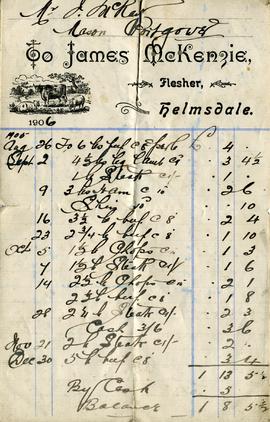 Mr J. McKay
Mason Portgower
To James McKenzie,
Flesher,
Helmsdale.
1906
1905
Aug 26 To 6 lb beef @ 8 4
Sept 2 4½ lb leg Lamb 3 4½
1½ Steak 1/-
9 Ham 2 6
10
16 3½ lb beef @ 8 2 4
23 2¾ lb beef @ 8 1 10
Oct 5 1½ lb Chops 1 3
7 1½ lb Steak 1 6
14 2½ lb Chops 2 1
2½ lb beef @ 8 1 8
28 2¼ lb Steak 2 3
Cash 3/6 3 6
Nov 21 2 lb Steak @ 1/- 2
Dec 30 5 lb beef @ 8 3 4
1 13 5½
By Cash 5
Balance 1 8 5½